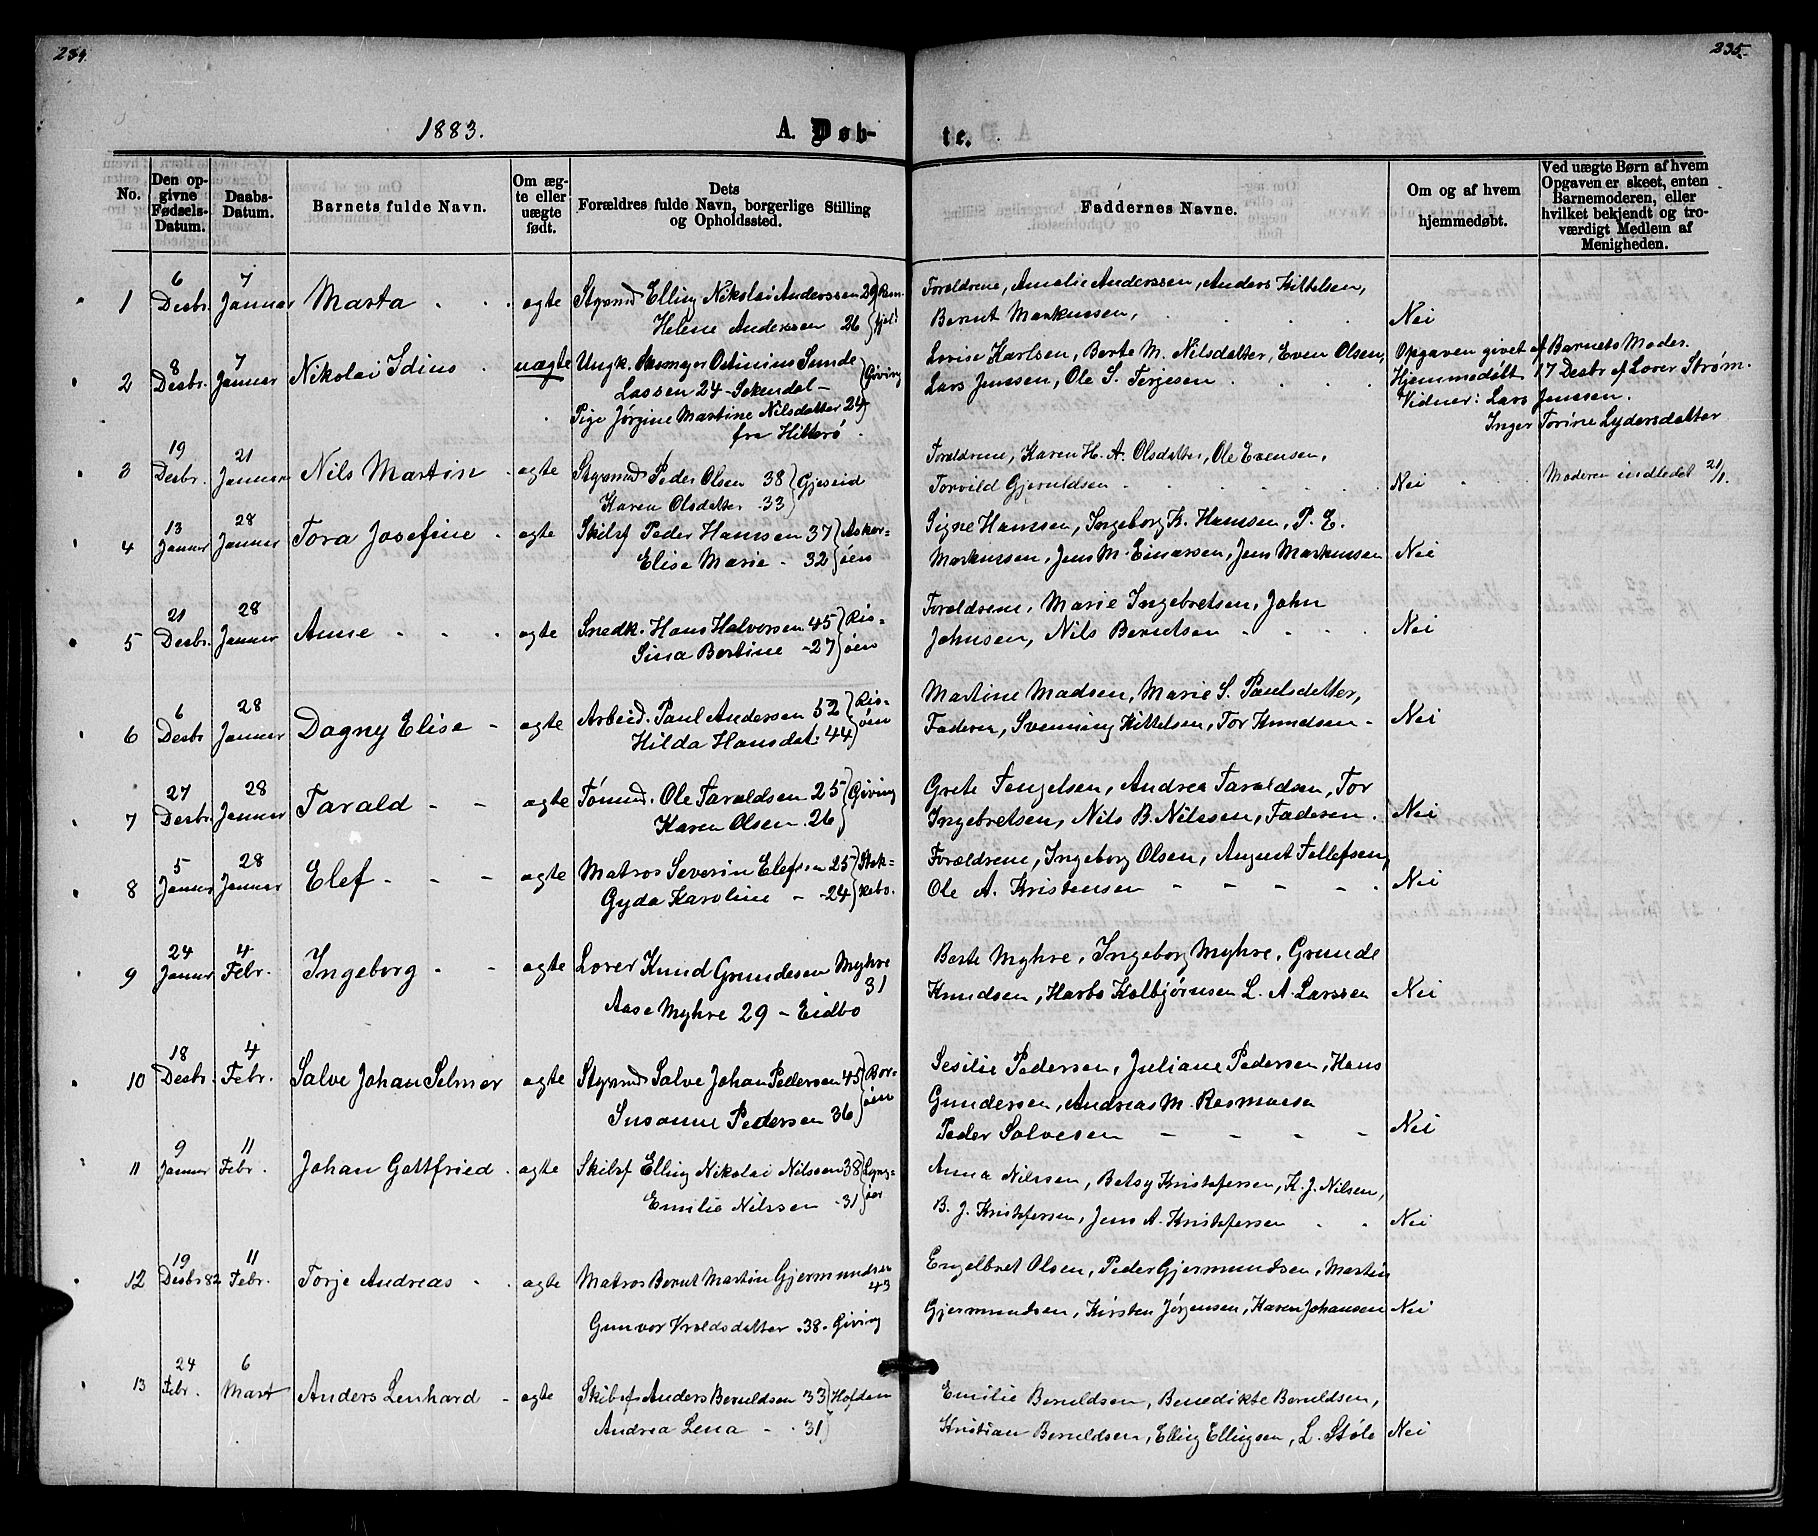 234.
235.
1883.
A. Døb-
te.
No.
Den op-
givne
Fødsels-
Datum.
Daabs-
Datum.
Barnets fulde Navn.
Om æg-
te eller
uægte
født.
Dets
Forældres fulde Navn, borgerlige Stilling
og Opholdssted.
Faddernes Navne.
Om og af hvem
hjemmedøbt.
Ved uægte Børn af hvem
Opgaven er skeet, enten
Barnemoderen, eller
hvilket bekjendt og tro-
værdigt Medlem af
Menigheden.
1 6 Desbr. 7 Januar Marta ægte Styrmd Elling Nikolai Anderssen 29
Helene Anderssen 26
Forældrene, Amalie Anderssen, Anders Kittelsen,
Bernt Markussen, Nei
2 8 Desbr. 7 Januar Nikolai Idius uægte Ungk. Ottinius Sunde
Lassen 24 - Sokndal - Giving
Pige Jørgine Martine Nilsdatter 24
fra Hitterø
Lovise Karlsen, Berte M. Nilsdatter, Even Olsen,
Lars Jenssen, Ole S. Terjesen
Opgaven givet af Barnets Moder.
Hjemmedøbt 17 Desbr af Lærer Strøm.
Vidner: Lars Jenssen.
Inger Torine Lydersdatter
3 19 Desbr. 21 Januar Nils Martin ægte Styrmd Peder Olsen 38 Gjeseid
Karen Olsdatter 33
Forældrene, Karen H. A. Olsdatter, Ole Evensen,
Torvild Gjeruldsen Nei Moderen indledet 21/1.
4 13 Januar 28 Januar Tora Josefine ægte Skibsf Peder Hanssen 37 Askør-
Elise Marie 32 øen
Signe Hanssen, Ingeborg K. Hanssen, P. E.
Markussen, Jens M. Einarsen, Jens Markussen Nei
5 21 Desbr. 28 Januar Anne ægte Snedk. Hans Halvorsen 45 Ris-
Sina Bertine 27 øen
Forældrene, Marie Ingebretsen, John
Johnsen, Nils Berntsen Nei
6 6 Desbr 28 Januar Dagny Elise ægte Arbeid. Paul Andersen 52 Ris-
øen
Hilda Hansdat. 44
Martine Madsen, Marie S. Paulsdatter,
Faderen, Svenning Kittelsen, Tor Knudsen Nei
7 27 Desbr. 28 Januar Tarald ægte Tømmd. Ole Taraldsen 25 Giving
Karen Olsen 26
Grete Tengelsen, Andrea Taraldsen, Tor
Ingebretsen, Nils B. Nilssen, Faderen. Nei
8 5 Januar 28 Januar Elef ægte Matros Severin Elefsen 25 Stok-
Gyda Karoline 24 kebo.
Forældrene, Ingeborg Olsen, August Tellefsen,
Ole A. Kristensen Nei
9 24 Januar 4 Febr. Ingeborg ægte Lærer Knud Grundesen Myhre
31
Aase Myhre 29 - Eidbo
Berte Myhre, Ingeborg Myhre, Grunde
Knudsen, Harbo Kolbjørnsen L. A. Larssen Nei
10 18 Desbr. 4 Febr. Salve Johan Selmer ægte Styrmd Salve Johan Pedersen 45 Bor-
øen
Susanne Pedersen 36
Sesilie Pedersen, Juliane Pedersen, Hans
Gundersen, Andreas M. Rasmussen
Peder Salvesen Nei
11 9 Januar 11 Febr. Johan Gottfried ægte Skibsf Elling Nikolai Nilssen 38 Lyng-
Emilie Nilssen 31 ør
Anna Nilssen, Betsy Kristofersen, K. J. Nilsen,
B. J. Kristofersen, Jens A. Kristofersen Nei
12 19 Desbr 82 11 Febr. Torje Andreas ægte Matros Bernt Martin Gjermundsen
43
Gunvor Vraldsdatter 38. Giving
Engelbret Olsen, Peder Gjermundsen, Martin
Gjermundsen, Kirsten Jørgensen, Karen Johansen Nei
13 24 Febr. 6 Mart Anders Lenhard ægte Skibsf Anders Beruldsen 33 Hofdan
Andrea Lena 31
Emilie Beruldsen, Benedikte Beruldsen,
Kristian Beruldsen, Elling Ellingsen, L. Støle Nei